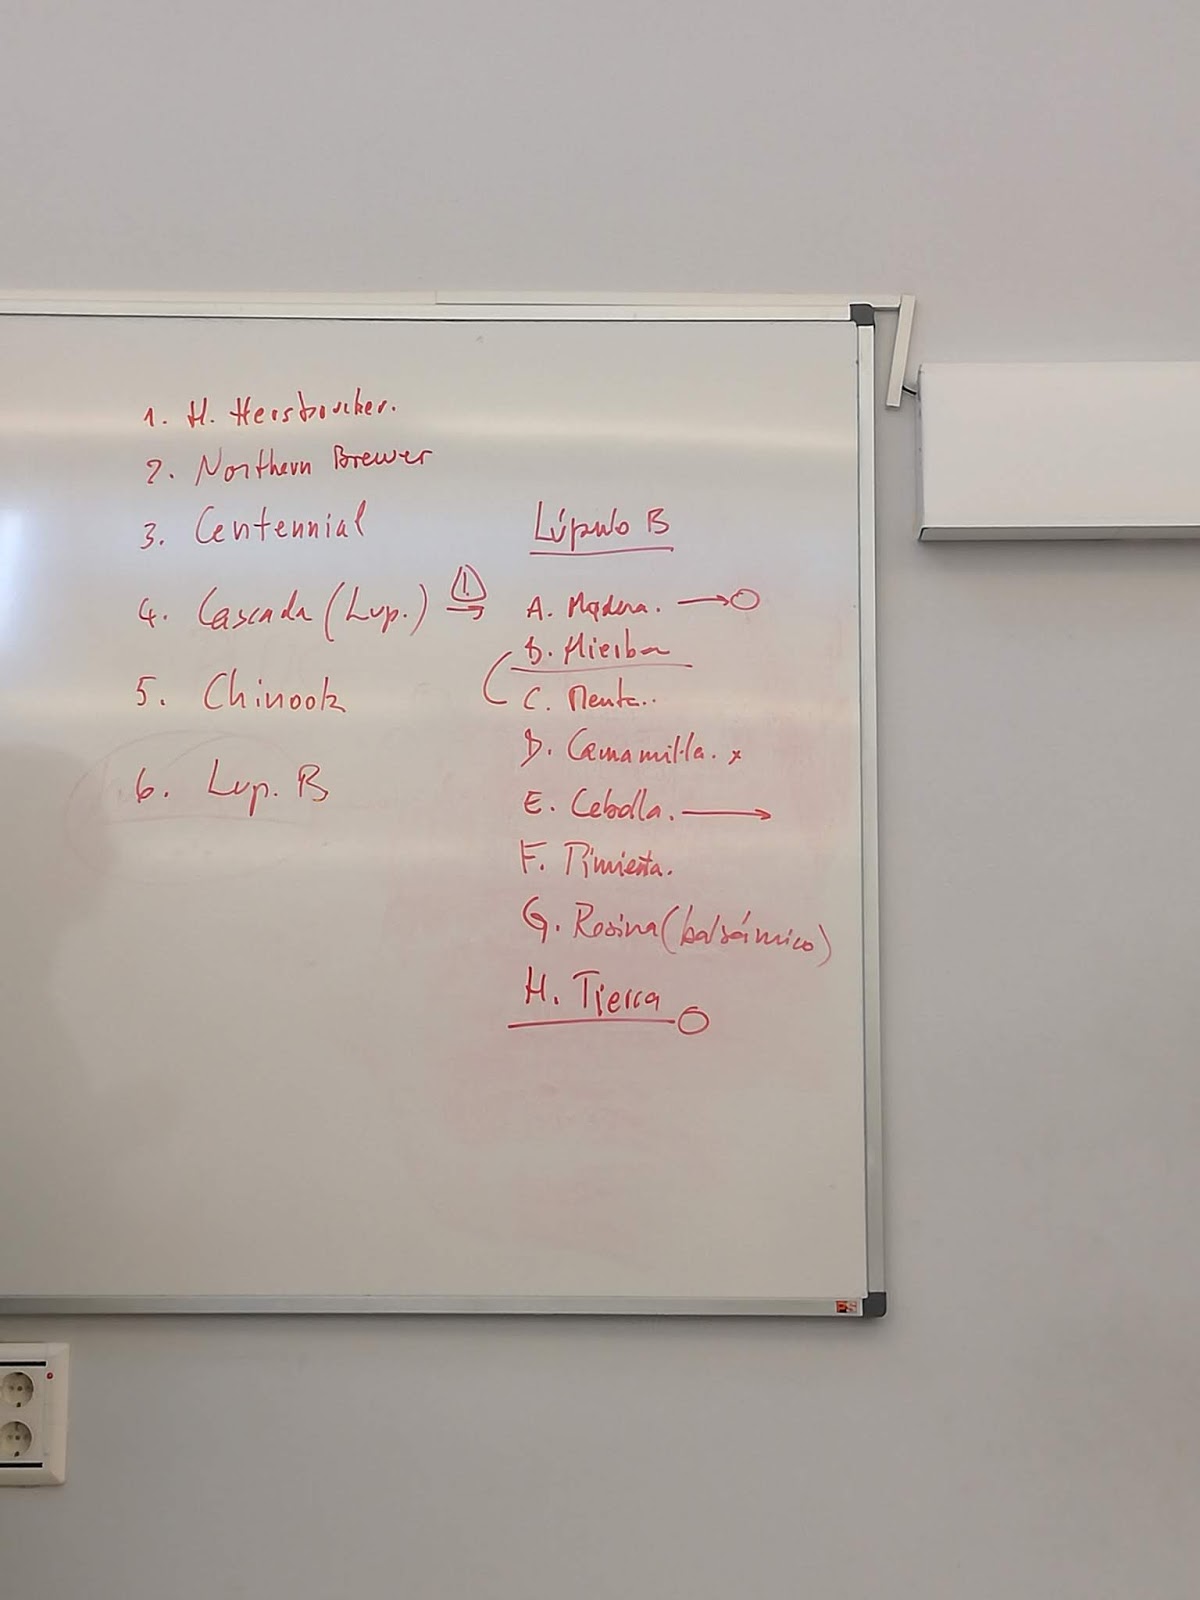 1. H. Hersbrucker.
2. Northern Brewer
3. Centennial
4. Cascada (Lup.)
5. Chinook
6. Lup. B
Lúpulo B
A. Madera.
B. Hierba
C. Menta..
D. Camamilla. x
E. Cebolla.
F. Pimienta.
G. Rosina (balsámico)
H. Tierra